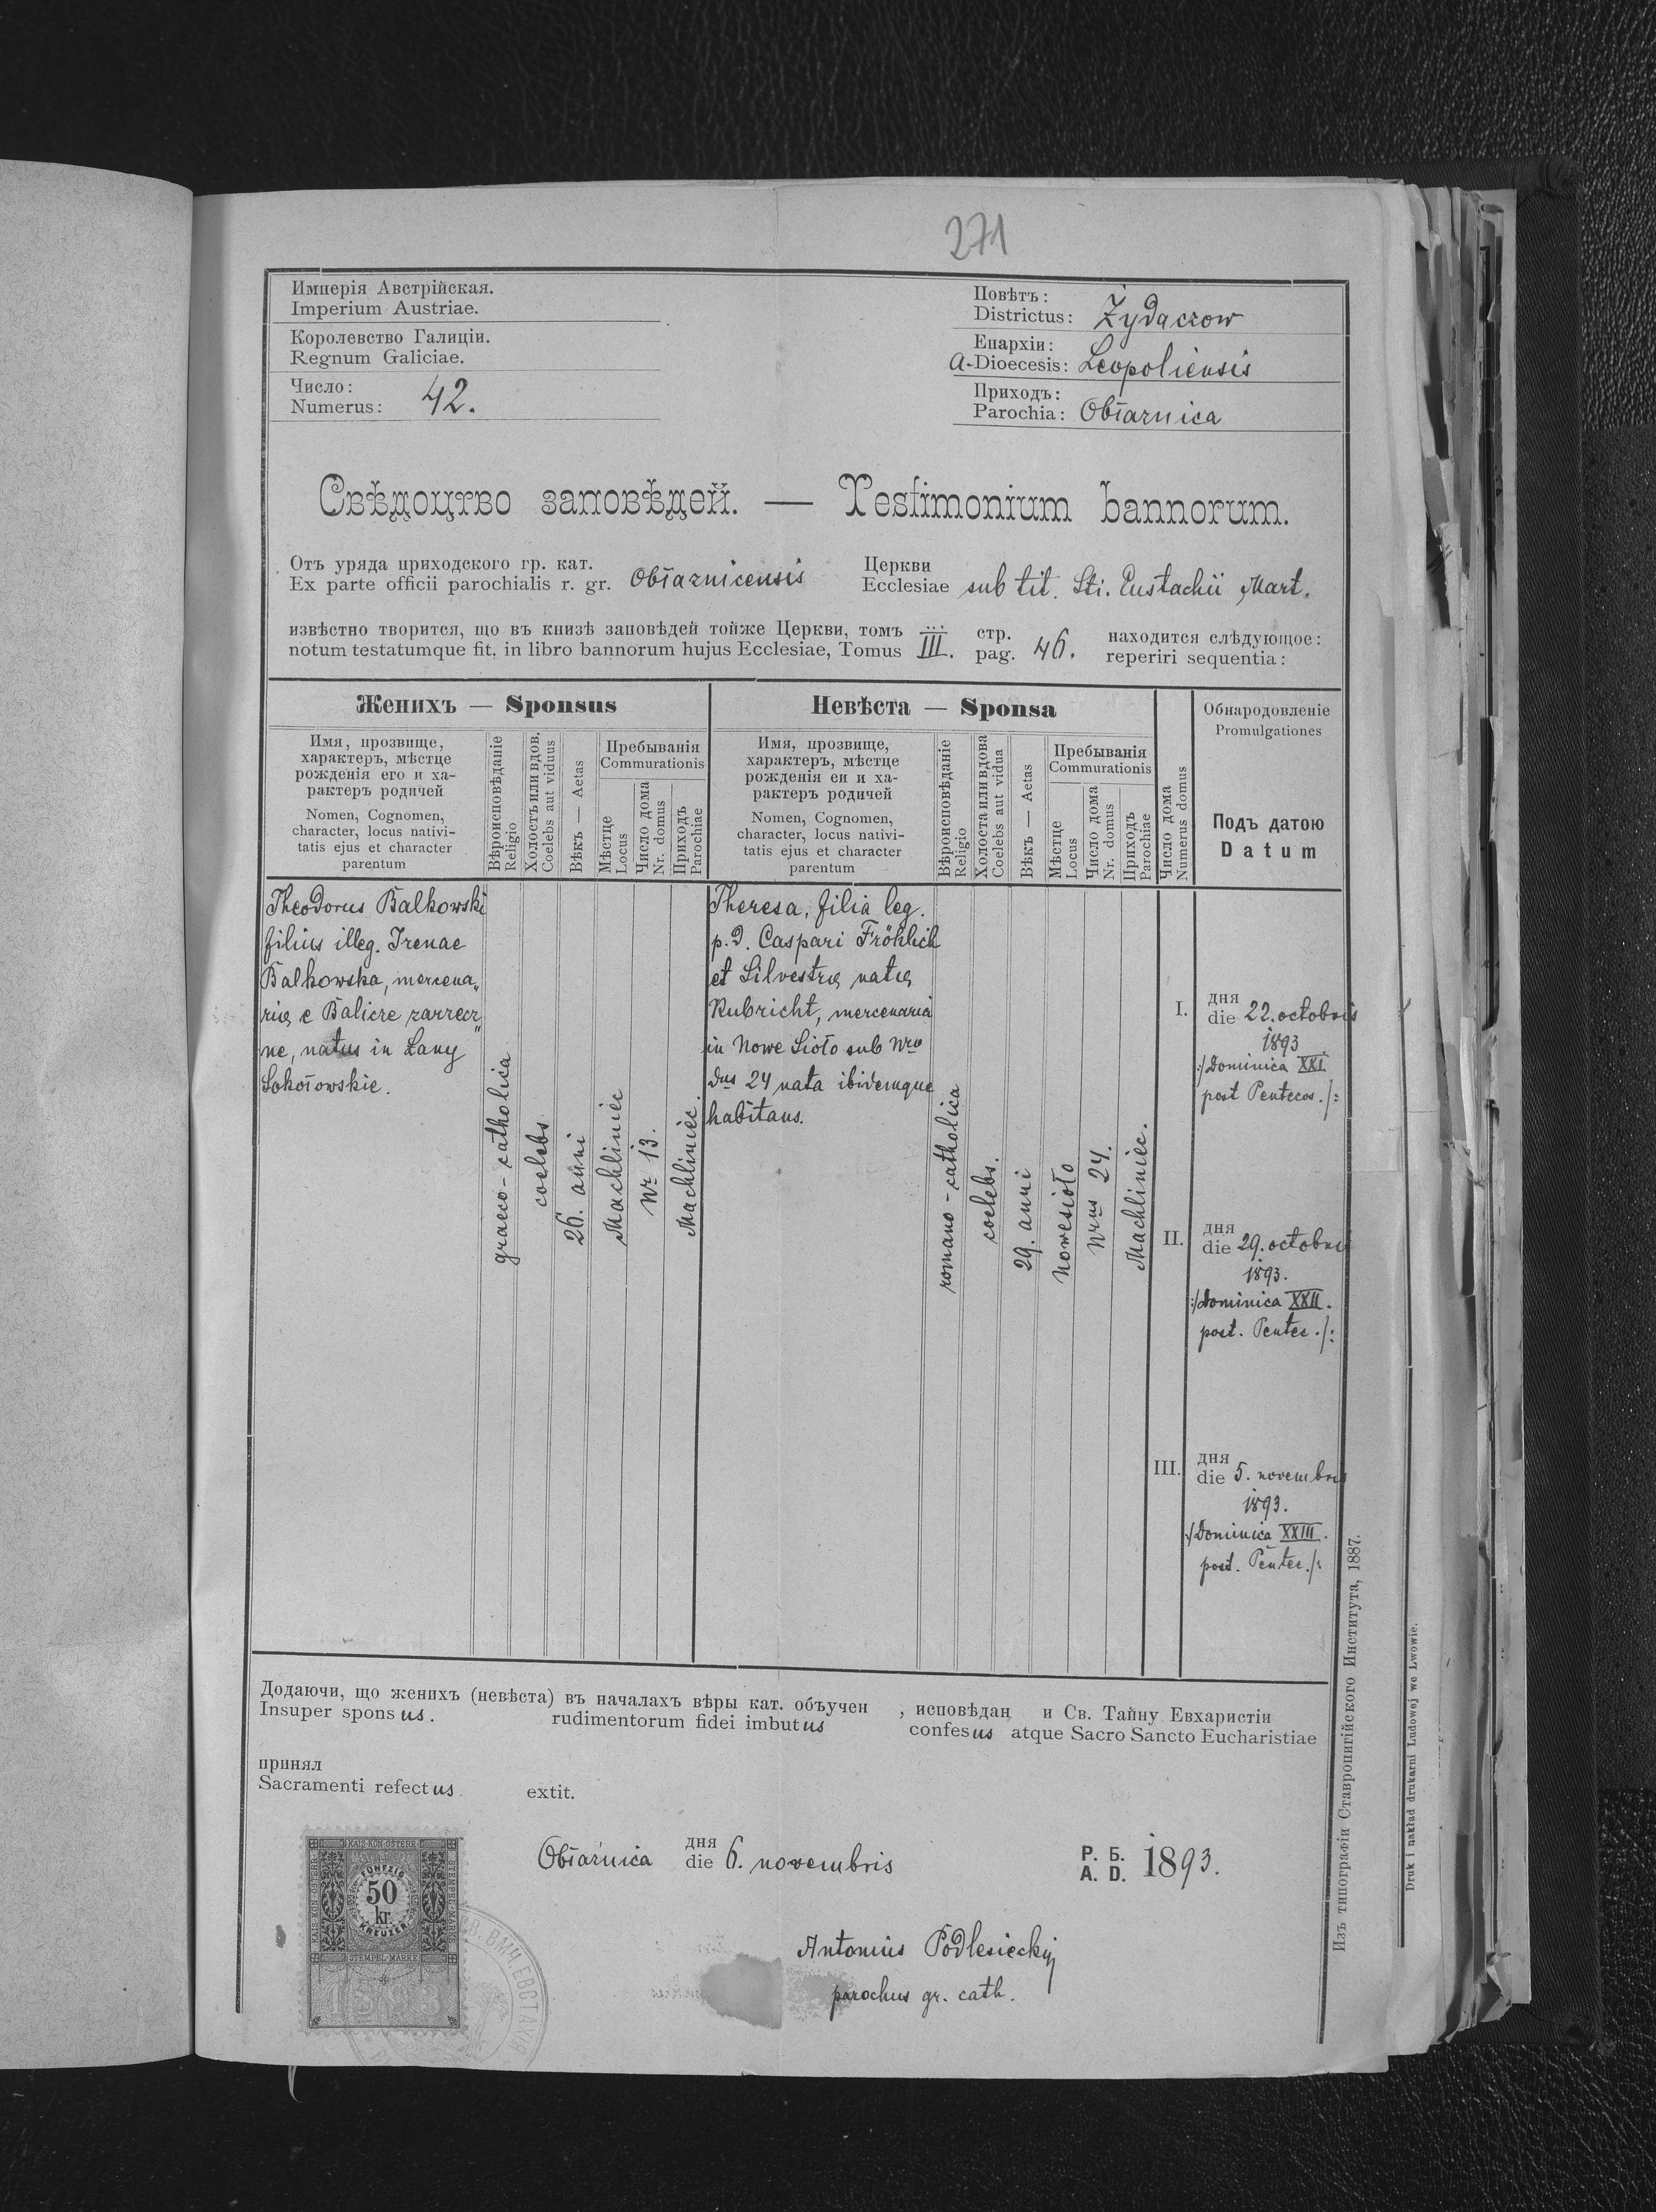 271
Имперія Австрійская.
Imperium Austriae.
Королевство Галиціи.
Regnum Galiciae.
Число:
Numerus: 42.
Повѣтъ:
Districtus: Żydaczow
Епархіи:
A-Dioecesis: Leopoliensis
Приходъ:
Parochia: Obłaznica
Свѣдоцтво заповѣдей. — Testimonium bannorum.
Отъ уряда приходского гр. кат. Церкви
Ex parte officii parochialis r. gr. Obłaznicensis Ecclesiae sub tit. Sti. Eustachii Mart.
извѣстно творится, що въ книзѣ заповѣдей тойже Церкви, томъ стр. находится слѣдующое:
notum testatumque fit. in libro bannorum hujus Ecclesiae, Tomus III. pag. 46. reperiri sequentia:
Женихъ — Sponsus
Имя, прозвище,
характеръ, мѣстце
рожденія его и ха-
рактеръ родичей
Nomen, Cognomen,
character, locus nativi-
tatis ejus et character
parentum
Вѣроисповѣданіе
Religio
Холостъ или вдов.
Coelebs aut viduus
Вѣкъ — Aetas
Пребыванія
Commurationis
Мѣстце
Locus
Число дома
Nr. domus
Приходъ
Parochiae
Невѣста — Sponsa
Имя, прозвище,
характеръ, мѣстце
рожденія еи и ха-
рактеръ родичей
Nomen, Cognomen,
character, locus nativi-
tatis ejus et character
parentum
Вѣроисповѣданіе
Religio
Холоста или вдова
Coelebs aut vidua
Вѣкъ — Aetas
Пребыванія
Commurationis
Мѣстце
Locus
Число дома
Nr. domus
Приходъ
Parochiae
Число дома
Numerus domus
Обнародовленіе
Promulgationes
Подъ датою
Datum
Theodorus Balkowski
filius illeg. Irenae
Balkowska, mercena„
riæ e Balicze zarzecz„
ne, natus in Łany
Sokołowskie.
graeco-catholica
coelebs
26. anni
Machliniec
Nr 13.
Machliniec.
Theresa, filia leg.
p.d. Caspari Fröhlich
et Silvestræ natæ
Rubricht, mercenaria
in Nowe Sioło sub Nro
dus 24 nata ibidemque
habitans.
romano-catholica
coelebs.
29. anni
Nowesioło
Nrus 24.
Machliniec.
I. дня
die 22. octobris
1893
:/Dominica XXI
post Pentecos./:
II. дня
die 29. octobris
1893.
:/Dominica XXII.
post. Pentec./:
III. дня
die 5. novembris
1893.
:/Dominica XXIII.
post. Pentec./:
Додаючи, що женихъ (невѣста) въ началахъ вѣры кат. объучен , исповѣдан и Св. Тайну Евхаристіи
Insuper sponsus. rudimentorum fidei imbutus confesus atque Sacro Sancto Eucharistiae
принял
Sacramenti refectus extit.
Obłaznica дня
die 6. novembris
Р. Б.
A. D. 1893.
Antonius Podlesieckij
parochus gr. cath.
KAIS. KÖN. ÖSTERR.
STEMPEL-MARKE
FÜNFZIG
50
kr.
KREUZER
STEMPEL-MARKE
1893
В. ВМЧ. ЕВСТАХІЯ
Изъ типографіи Ставропигійского Института, 1887.
Druk i nakład drukarni Ludowej we Lwowie.